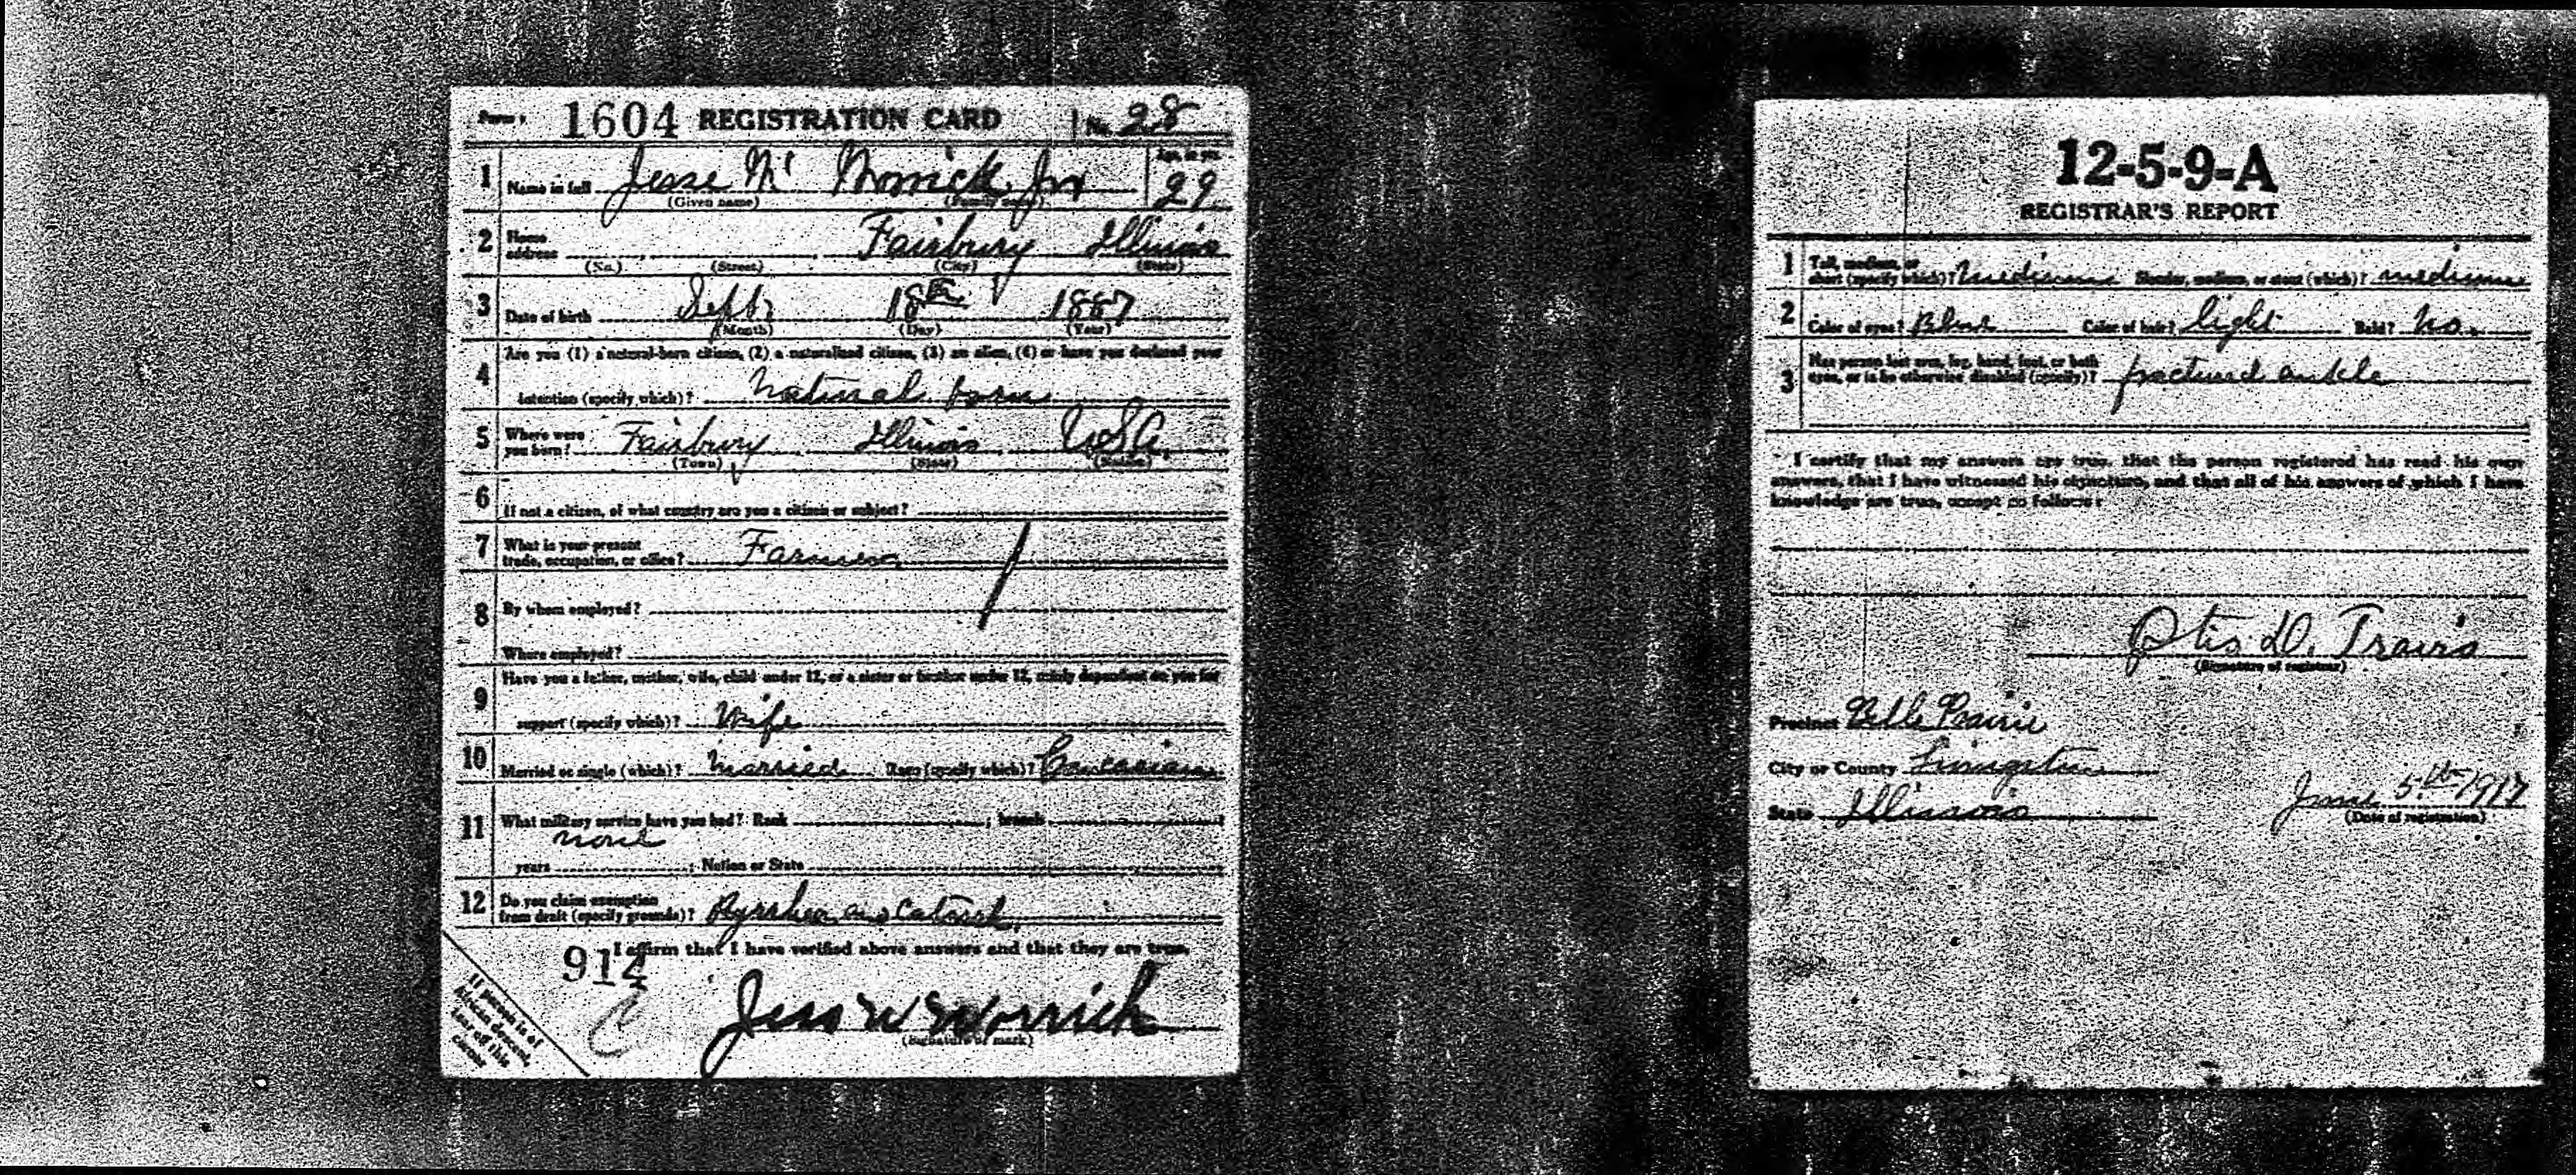 Form 1 1604 REGISTRATION CARD No. 28
1 Name in full Jesse W Worrick Jr Age, in yrs. 29
(Given name) (Family name)
2 Home address Fairbury Illinois
(No.) (Street) (City) (State)
3 Date of birth Sept 18th 1887
(Month) (Day) (Year)
Are you (1) a natural-born citizen, (2) a naturalized citizen, (3) an alien, (4) or have you declared your
4 intention (specify which)? Natural born
5 Where were you born? Fairbury Illinois USA
(Town) (State) (Nation)
6 If not a citizen, of what country are you a citizen or subject?
7 What is your present
trade, occupation, or office? Farmer
8 By whom employed?
Where employed?
Have you a father, mother, wife, child under 12, or a sister or brother under 12, solely dependent on you for
9 support (specify which)? Wife
10 Married or single (which)? Married Race (specify which)? Caucasian
11 What military service have you had? Rank ; branch ;
none
years ; Nation or State
12 Do you claim exemption
from draft (specify grounds)? Pyrrhea and Catarrh
I affirm that I have verified above answers and that they are true.
912
C
Jess W Worrick
(Signature or mark)
If person is of
African descent,
tear off this
corner
12-5-9-A
REGISTRAR'S REPORT
1 Tall, medium, or
short (specify which)? Medium Slender, medium, or stout (which)? medium
2 Color of eyes? Blue Color of hair? light Bald? No.
3 Has person lost arm, leg, hand, foot, or both
eyes, or is he otherwise disabled (specify)? fractured ankle
I certify that my answers are true, that the person registered has read his own
answers, that I have witnessed his signature, and that all of his answers of which I have
knowledge are true, except as follows:
Otis D. Travis
(Signature of registrar)
Precinct Belle Prairie
City or County Livingston
State Illinois June 5th 1917
(Date of registration)